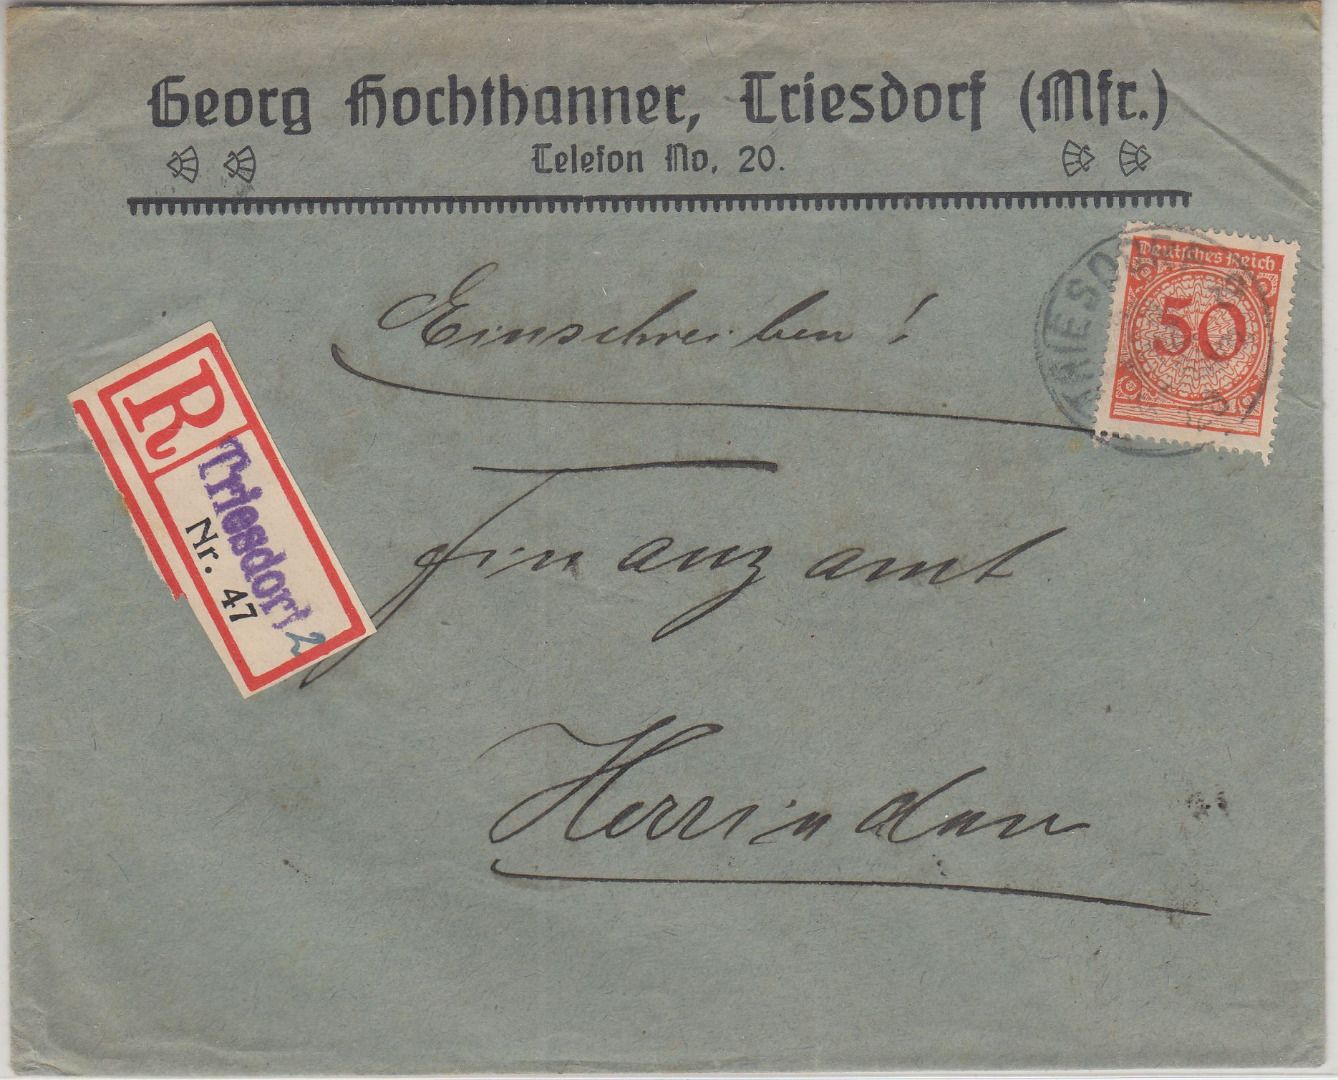 Georg Hochthanner, Triesdorf (Mfr.)
Telefon No. 20.
Deutsches Reich
50
TRIESDO
Einschreiben!
R
Triesdorf 2
Nr. 47
Finanzamt
Herrieden